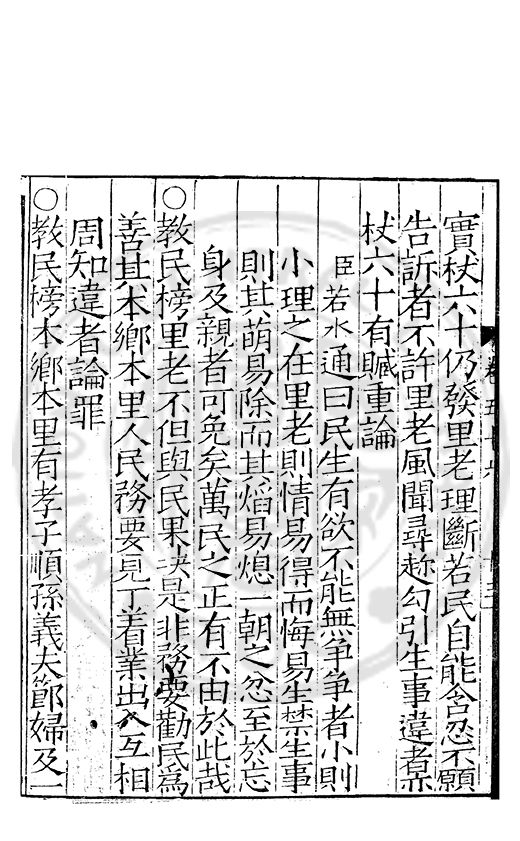 實杖六十仍發里老理斷若民自能含忍不願
告訴者不許里老風聞尋趂勾引生事違者亦
杖六十有贓重論
臣若水通曰民生有欲不能無爭爭者小則
小理之在里老則情易得而悔易生禁生事
則其萌易除而其焰易熄一朝之忿至於忘
身及親者可免矣萬民之正有不由於此哉
○教民榜里老不但與民果決是非務要勸民爲
善其本鄉本里人民務要見丁着業出入互相
周知違者論罪
○教民榜本鄉本里有孝子順孫義夫節婦及一